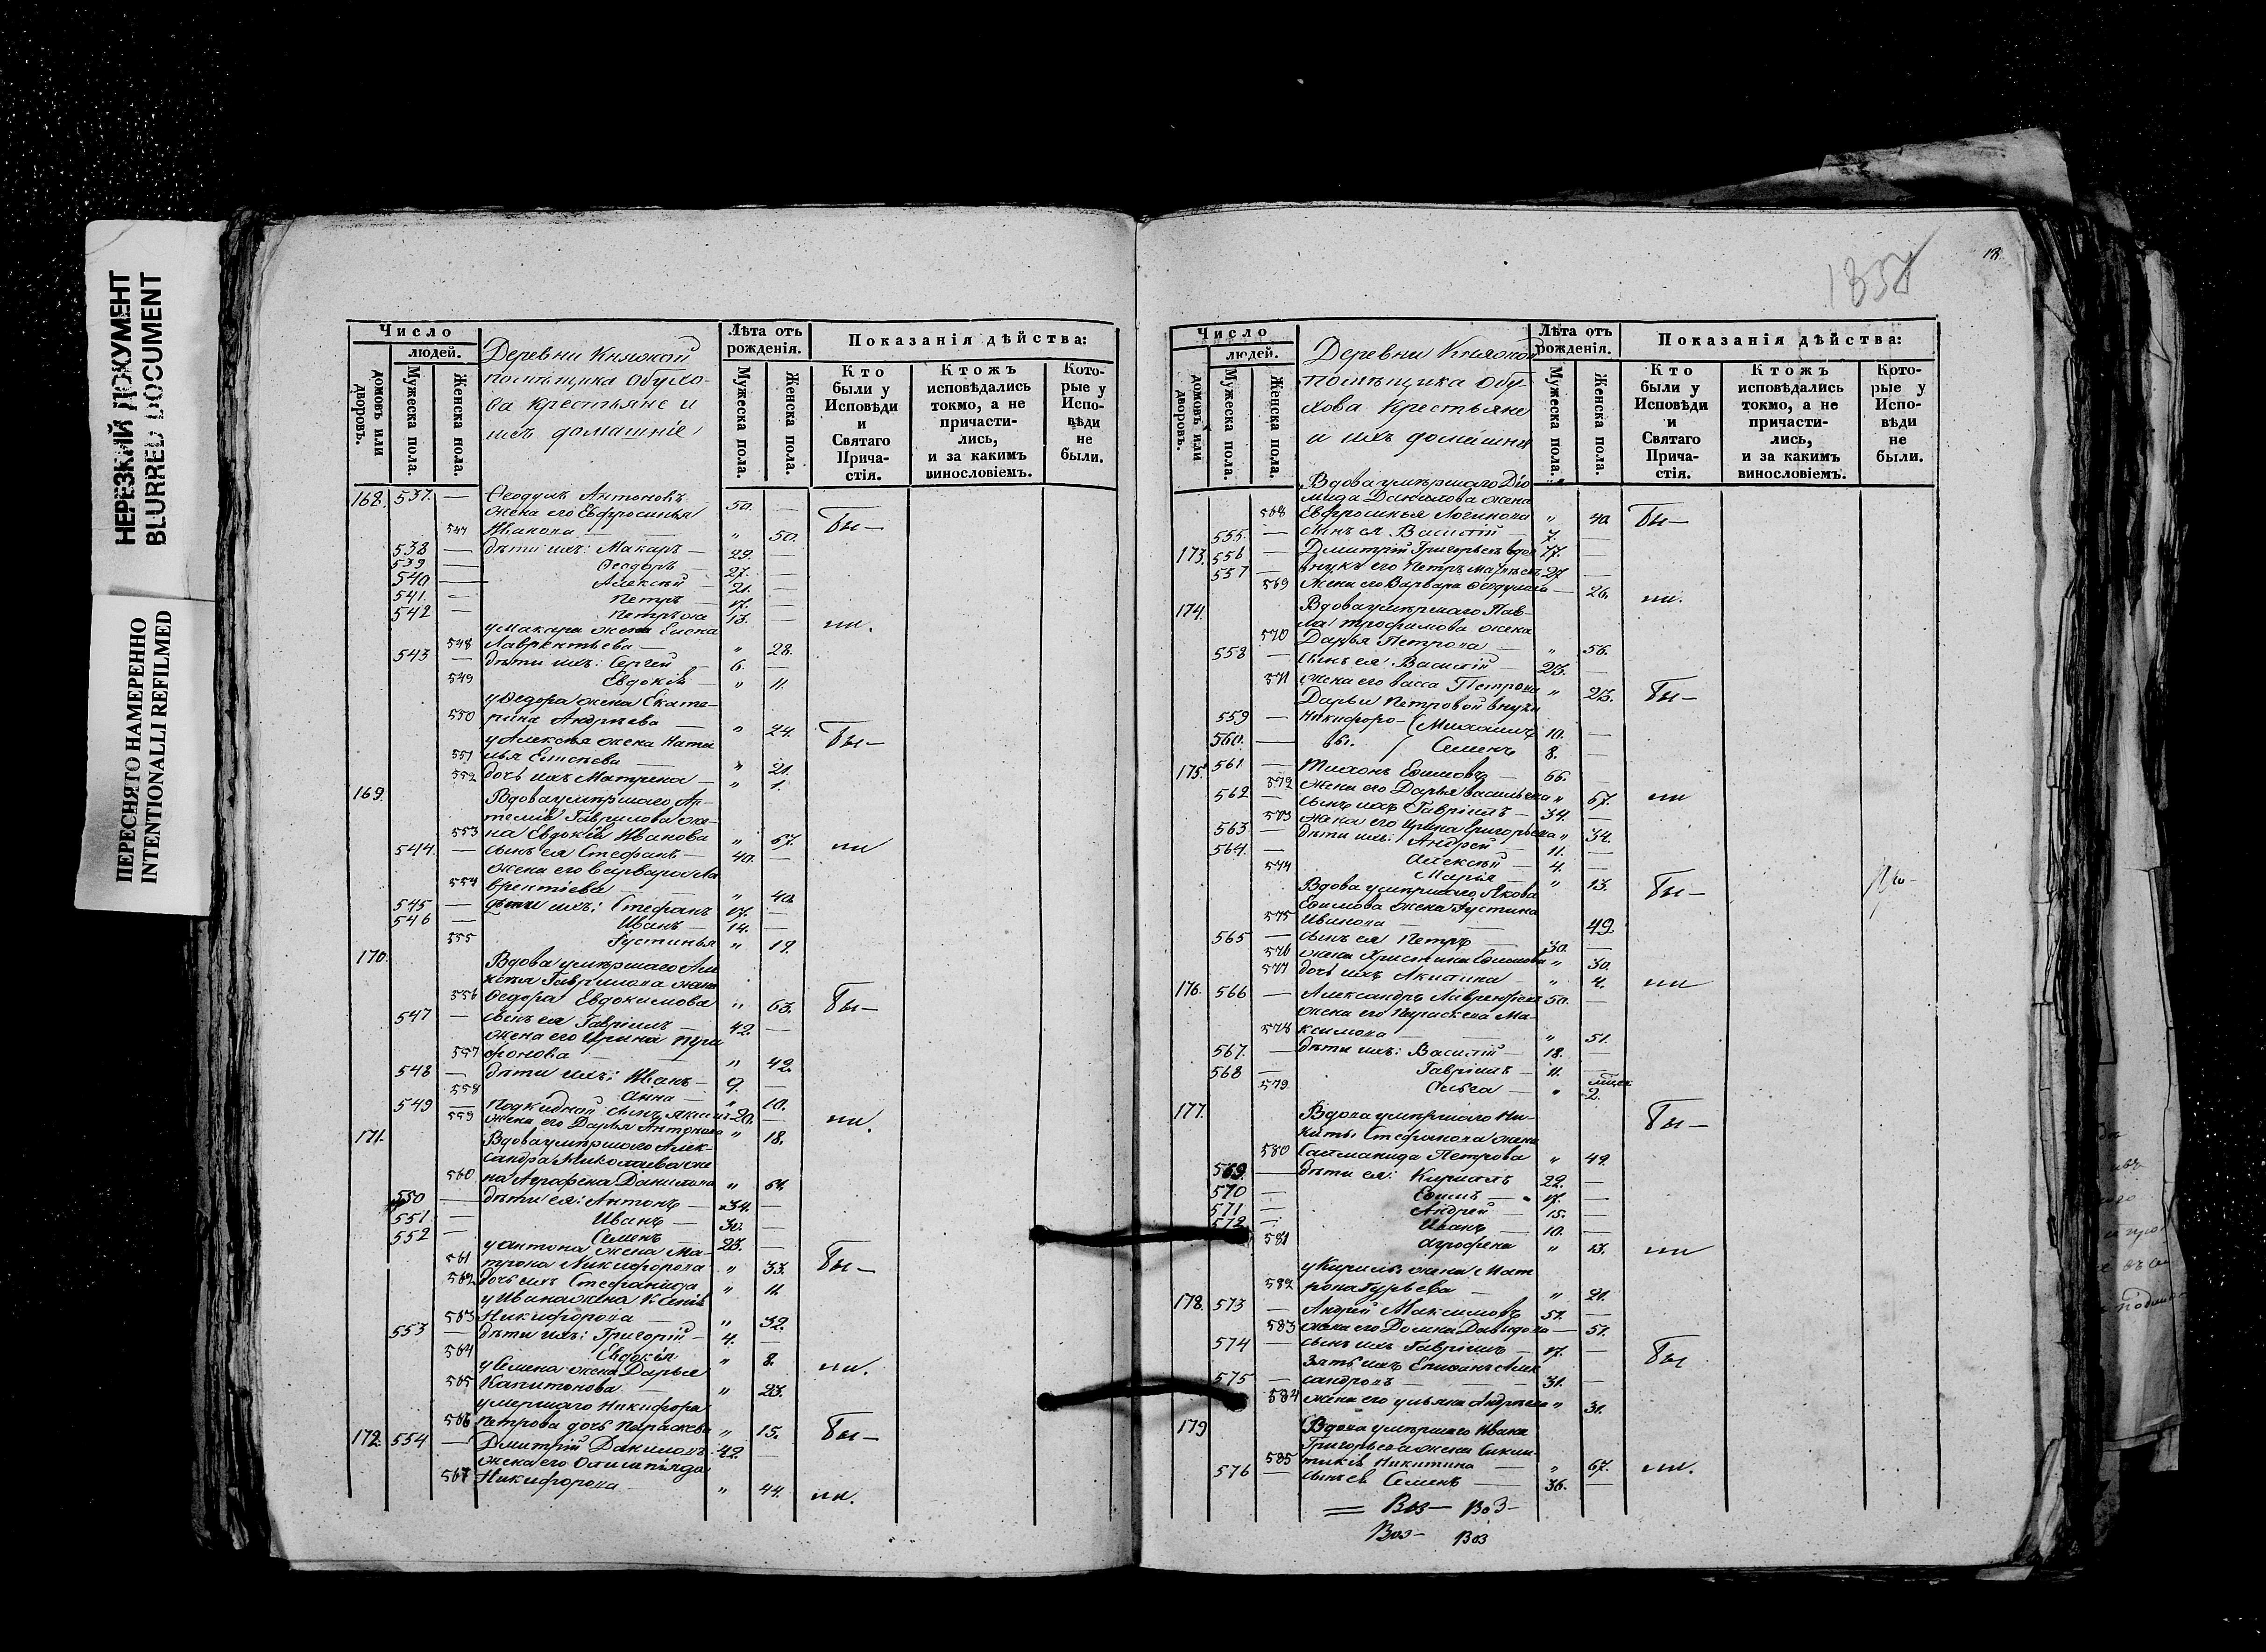 НЕРЕЗКИЙ ДОКУМЕНТ
BLURRED DOCUMENT
ПЕРЕСНЯТО НАМЕРЕННО
INTENTIONALLI REFILMED
Число
людей.
домовъ или дворовъ.
Мужеска пола.
Женска пола.
Деревни Княжой
помѣщика Обухо-
ва крестьяне и
ихъ домашніе
Лѣта отъ рожденія.
Мужеска пола.
Женска пола.
Показанія дѣйства:
Кто были у Исповѣди и Святаго Прича-стія.
Ктожъ исповѣдались токмо, а не причасти-лись, и за какимъ винословіемъ.
Кото-рые у Испо-вѣди не были.
168. 537. — Ѳеодулъ Антоновъ 50. —
жена его Евфросинья
547 Иванова — " 50. Бы—
538 — дѣти ихъ: Макаръ — 29. —
539 — Ѳеодоръ — 27. —
540 — Алексѣй — 21. —
541. — Петръ — 17. —
542 — Петръ же 13. — ли.
у Макара жена Елена
548 Лаврентьева — " 28.
543 — дѣти ихъ: Сергей — 6. —
549 Евдокія — " 11.
у Ѳедора жена Екате-
550 рина Андреева — " 24. Бы—
у Алексѣя жена Ната
551 лья Елисѣева — " 21.
552 дочь ихъ Матрена — " 1.
169. Вдова умѣршаго Ар-
темія Гаврилова же-
553 на Евдокія Иванова " 67. ли
544. — сынъ ея Стефанъ — 40. —
жена его Варвара Ла
554 врентіева — " 40.
545 — дѣти ихъ: Стефанъ 17. —
546 — Иванъ — 14. —
555 Іустинья " 19.
170. Вдова умѣршаго Але
ксѣя Гаврилова жена
556 Ѳедора Евдокимова " 63. Бы—
547 — сынъ ея Гавріилъ — 42. —
жена его Ирина
557 фонова — " 42.
548 — дѣти ихъ: Иванъ — 9. —
558 Анна — " 10.
549 — Подкидной сынъ 20. —
559 жена его Дарья Антонова " 18. ли.
171. Вдова умѣршаго Алек-
сандра Николаева же
560 на Аграфена Данилова " 61.
550 — дѣти ея: Антонъ — 34. —
551 — Иванъ — 30. —
552 — Семенъ — 23. —
у Антона жена Ма-
561 трона Никифорова " 33. Бы—
562 дочь ихъ Стефанида " 11.
у Ивана жена Ксенія
563 Никифорова — " 32.
553 — дѣти ихъ: Григорій — 4. —
564 Евдокія " 8. ли.
у Семена жена Дарья
565 Капитонова — " 23.
умершаго Никифора
566 Петрова дочь Параскева " 15. Бы—
172. 554 — Дмитрій Даниловъ 42. —
жена его Олимпіяда
567 Никифорова " 44. ли.
1857
Число
людей.
домовъ или дворовъ.
Мужеска пола.
Женска пола.
Деревни Княжой
помѣщика Обу-
хова крестьяне
и ихъ домашніе
Лѣта отъ рожденія.
Мужеска пола.
Женска пола.
Показанія дѣйства:
Кто были у Исповѣди и Святаго Прича-стія.
Ктожъ исповѣдались токмо, а не причасти-лись, и за какимъ винословіемъ.
Кото-рые у Испо-вѣди не были.
Вдова умѣршаго Діо
мида Данилова жена
568 Евфросинья Логинова " 40. Бы—
555. — сынъ ея Василій — 7. —
173. 556 — Дмитрій Григорьевъ вдов 77. —
557 — внукъ его Петръ 27 —
569 жена его Варвара Ѳеодулова — 26. ли.
174. Вдова умѣршаго Пав-
ла Трофимова жена
570 Дарья Петрова — " 56.
558 — сынъ ея Василій — 23. —
571 жена его Васса Петрова " 23. Бы—
Дарьи Петровой внуки
559 — Никифоро- Михаилъ 10. —
560. — вы. Семенъ 8. —
175. 561 — Тихонъ Ефимовъ — 66. —
572 жена его Дарья Васильева " 67. ли
562 — сынъ ихъ Гавріилъ — 34. —
573 жена его Ирина Григорьева " 34.
563 — дѣти ихъ: Андрей — 11. —
564. — Алексѣй — 4. —
574 Марія — " 13. Бы—
Вдова умѣршаго Якова
Ефимова жена Іустина
575 Иванова — 49.
565 — сынъ ея Петръ — 30. —
576 жена Христина Ефимова " 30.
577 дочь ихъ Акилина — " 4. ли
176. 566 — Александръ Лаврентьевъ 50. —
жена его Параскева Ма-
578 ксимова — " 51.
567. — дѣти ихъ: Василій — 18. —
568 — Гавріилъ — 11. —
579 Ольга — " 2.
177. Вдова умѣршаго Ни- Бы—
киты Стефанова жена
580 Саломанида Петрова " 49.
569. — дѣти ея: Кириллъ 22. —
570 — Ефимъ — 17. —
571 — Андрей — 15. —
572 — Иванъ — 10. —
581 Агрофена " 13. ли
у Кирилы жена Мат
582 рона Гурьева — " 21.
178. 573 — Андрей Максимовъ 51. —
583 жена его Домна Давидова — 51.
574 — сынъ ихъ Гавріилъ — 17. — Бы
зять ихъ Епифанъ Алек
575 — сандровъ — 31. —
584 жена его Ульяна Андреева " 31.
179 Вдова умѣршаго Ивана
Григорьева жена Синкли-
585 тикія Никитина — " 67. ли.
576 — сынъ ея Семенъ — 36. —
= Воз— Воз—
Воз— Воз